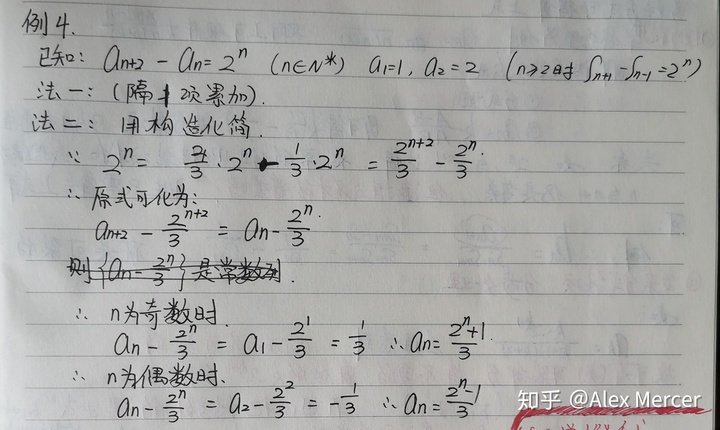 例4.
已知: aₙ₊₂ - aₙ = 2ⁿ (n∈N*) a₁=1, a₂=2 (n≥2时 Sₙ₊₁-Sₙ₋₁=2ⁿ)
法一: (隔1项累加).
法二: 用构造化简.
∵ 2ⁿ = 4/3·2ⁿ - 1/3·2ⁿ = 2ⁿ⁺²/3 - 2ⁿ/3.
∴ 原式可化为:
aₙ₊₂ - 2ⁿ⁺²/3 = aₙ - 2ⁿ/3.
则{aₙ - 2ⁿ/3}是常数列.
∴ n为奇数时.
aₙ - 2ⁿ/3 = a₁ - 2¹/3 = 1/3 ∴ aₙ = (2ⁿ+1)/3.
∴ n为偶数时.
aₙ - 2ⁿ/3 = a₂ - 2²/3 = -1/3 ∴ aₙ = (2ⁿ-1)/3
知乎 @Alex Mercer